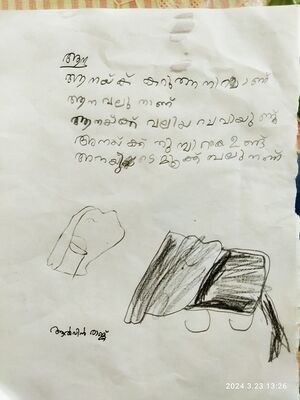 ആന
ആനയ്ക്ക് കറുത്ത നിറമാണ്
ആന വലുതാണ്
ആനയ്ക്ക് വലിയ ചെവിയുണ്ട്
ആനയ്ക്ക് തുമ്പികൈ ഉണ്ട്
ആനയുടെ മൂക്ക് വലുതാണ്
ആൽവിൻ
2024.3.23 13:26